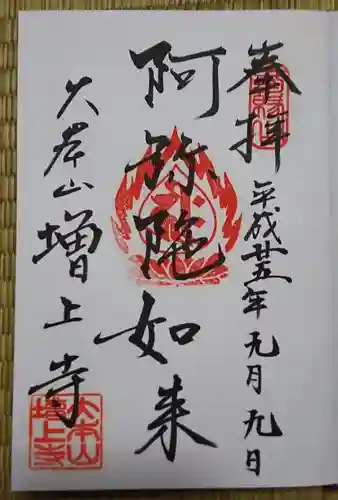 奉拝
平成廿五年元月九日
阿弥陀如来
大本山増上寺
大本山
増上寺